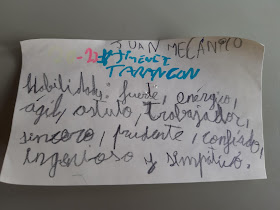 JUAN MECANICO
-22 # JIMENEZ
TARANCON
Habilidades: fuerte, enérgico,
ágil, astuto, trabajador,
sincero, prudente, confiado,
ingenioso y simpático.